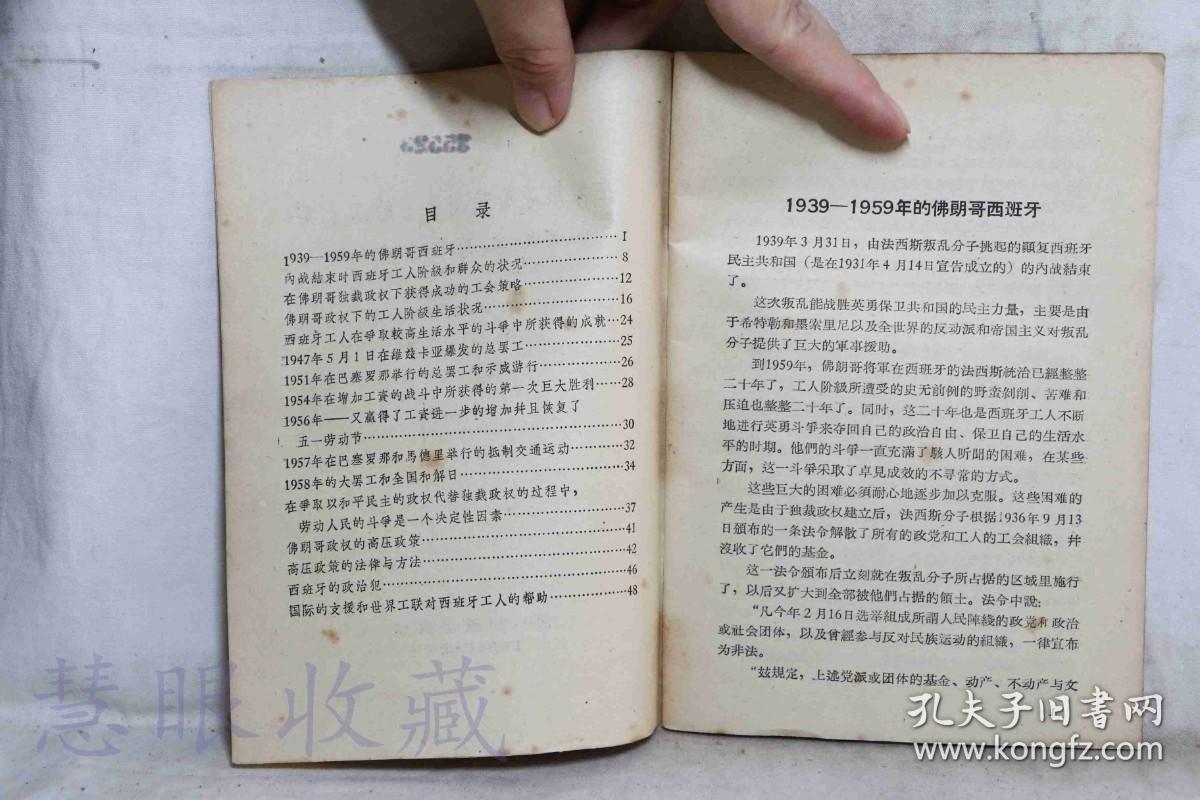 目 录
1939—1959年的佛朗哥西班牙……1
內战結束时西班牙工人阶級和群众的状况……8
在佛朗哥独裁政权下获得成功的工会策略……12
佛朗哥政权下的工人阶級生活状况……16
西班牙工人在爭取較高生活水平的斗爭中所获得的成就…24
1947年5月1日在維兹卡亚爆发的总罢工……25
1951年在巴塞罗那举行的总罢工和示威游行……26
1954年在增加工資的战斗中所获得的第一次巨大胜利……28
1956年——又赢得了工資进一步的增加幷且恢复了
五一劳动节……30
1957年在巴塞罗那和馬德里举行的抵制交通运动……32
1958年的大罢工和全国和解日……34
在爭取以和平民主的政权代替独裁政权的过程中，
劳动人民的斗爭是一个决定性因素……37
佛朗哥政权的高压政策……41
高压政策的法律与方法……42
西班牙的政治犯……46
国际的支援和世界工联对西班牙工人的帮助……48
1939—1959年的佛朗哥西班牙
1939年3月31日，由法西斯叛乱分子挑起的顚复西班牙
民主共和国（是在1931年4月14日宣告成立的）的內战結束
了。
这次叛乱能战胜英勇保卫共和国的民主力量，主要是由
于希特勒和墨索里尼以及全世界的反动派和帝国主义对叛乱
分子提供了巨大的軍事援助。
到1959年，佛朗哥将軍在西班牙的法西斯統治已經整整
二十年了，工人阶級所遭受的史无前例的野蛮剝削、苦难和
压迫也整整二十年了。同时，这二十年也是西班牙工人不断
地进行英勇斗爭来夺回自己的政治自由、保卫自己的生活水
平的时期。他們的斗爭一直充滿了駭人听聞的困难，在某些
方面，这一斗爭采取了卓見成效的不寻常的方式。
这些巨大的困难必須耐心地逐步加以克服。这些困难的
产生是由于独裁政权建立后，法西斯分子根据1936年9月13
日頒布的一条法令解散了所有的政党和工人的工会組織，幷
沒收了它們的基金。
这一法令頒布后立刻就在叛乱分子所占据的区域里施行
了，以后又扩大到全部被他們占据的領土。法令中說：
“凡今年2月16日选举組成所謂人民陣綫的政党和政治
或社会团体，以及曾經参与反对民族运动的組織，一律宣布
为非法。
“茲規定，上述党派或团体的基金、动产、不动产与文
慧眼收藏
孔夫子旧书网
www.kongfz.com